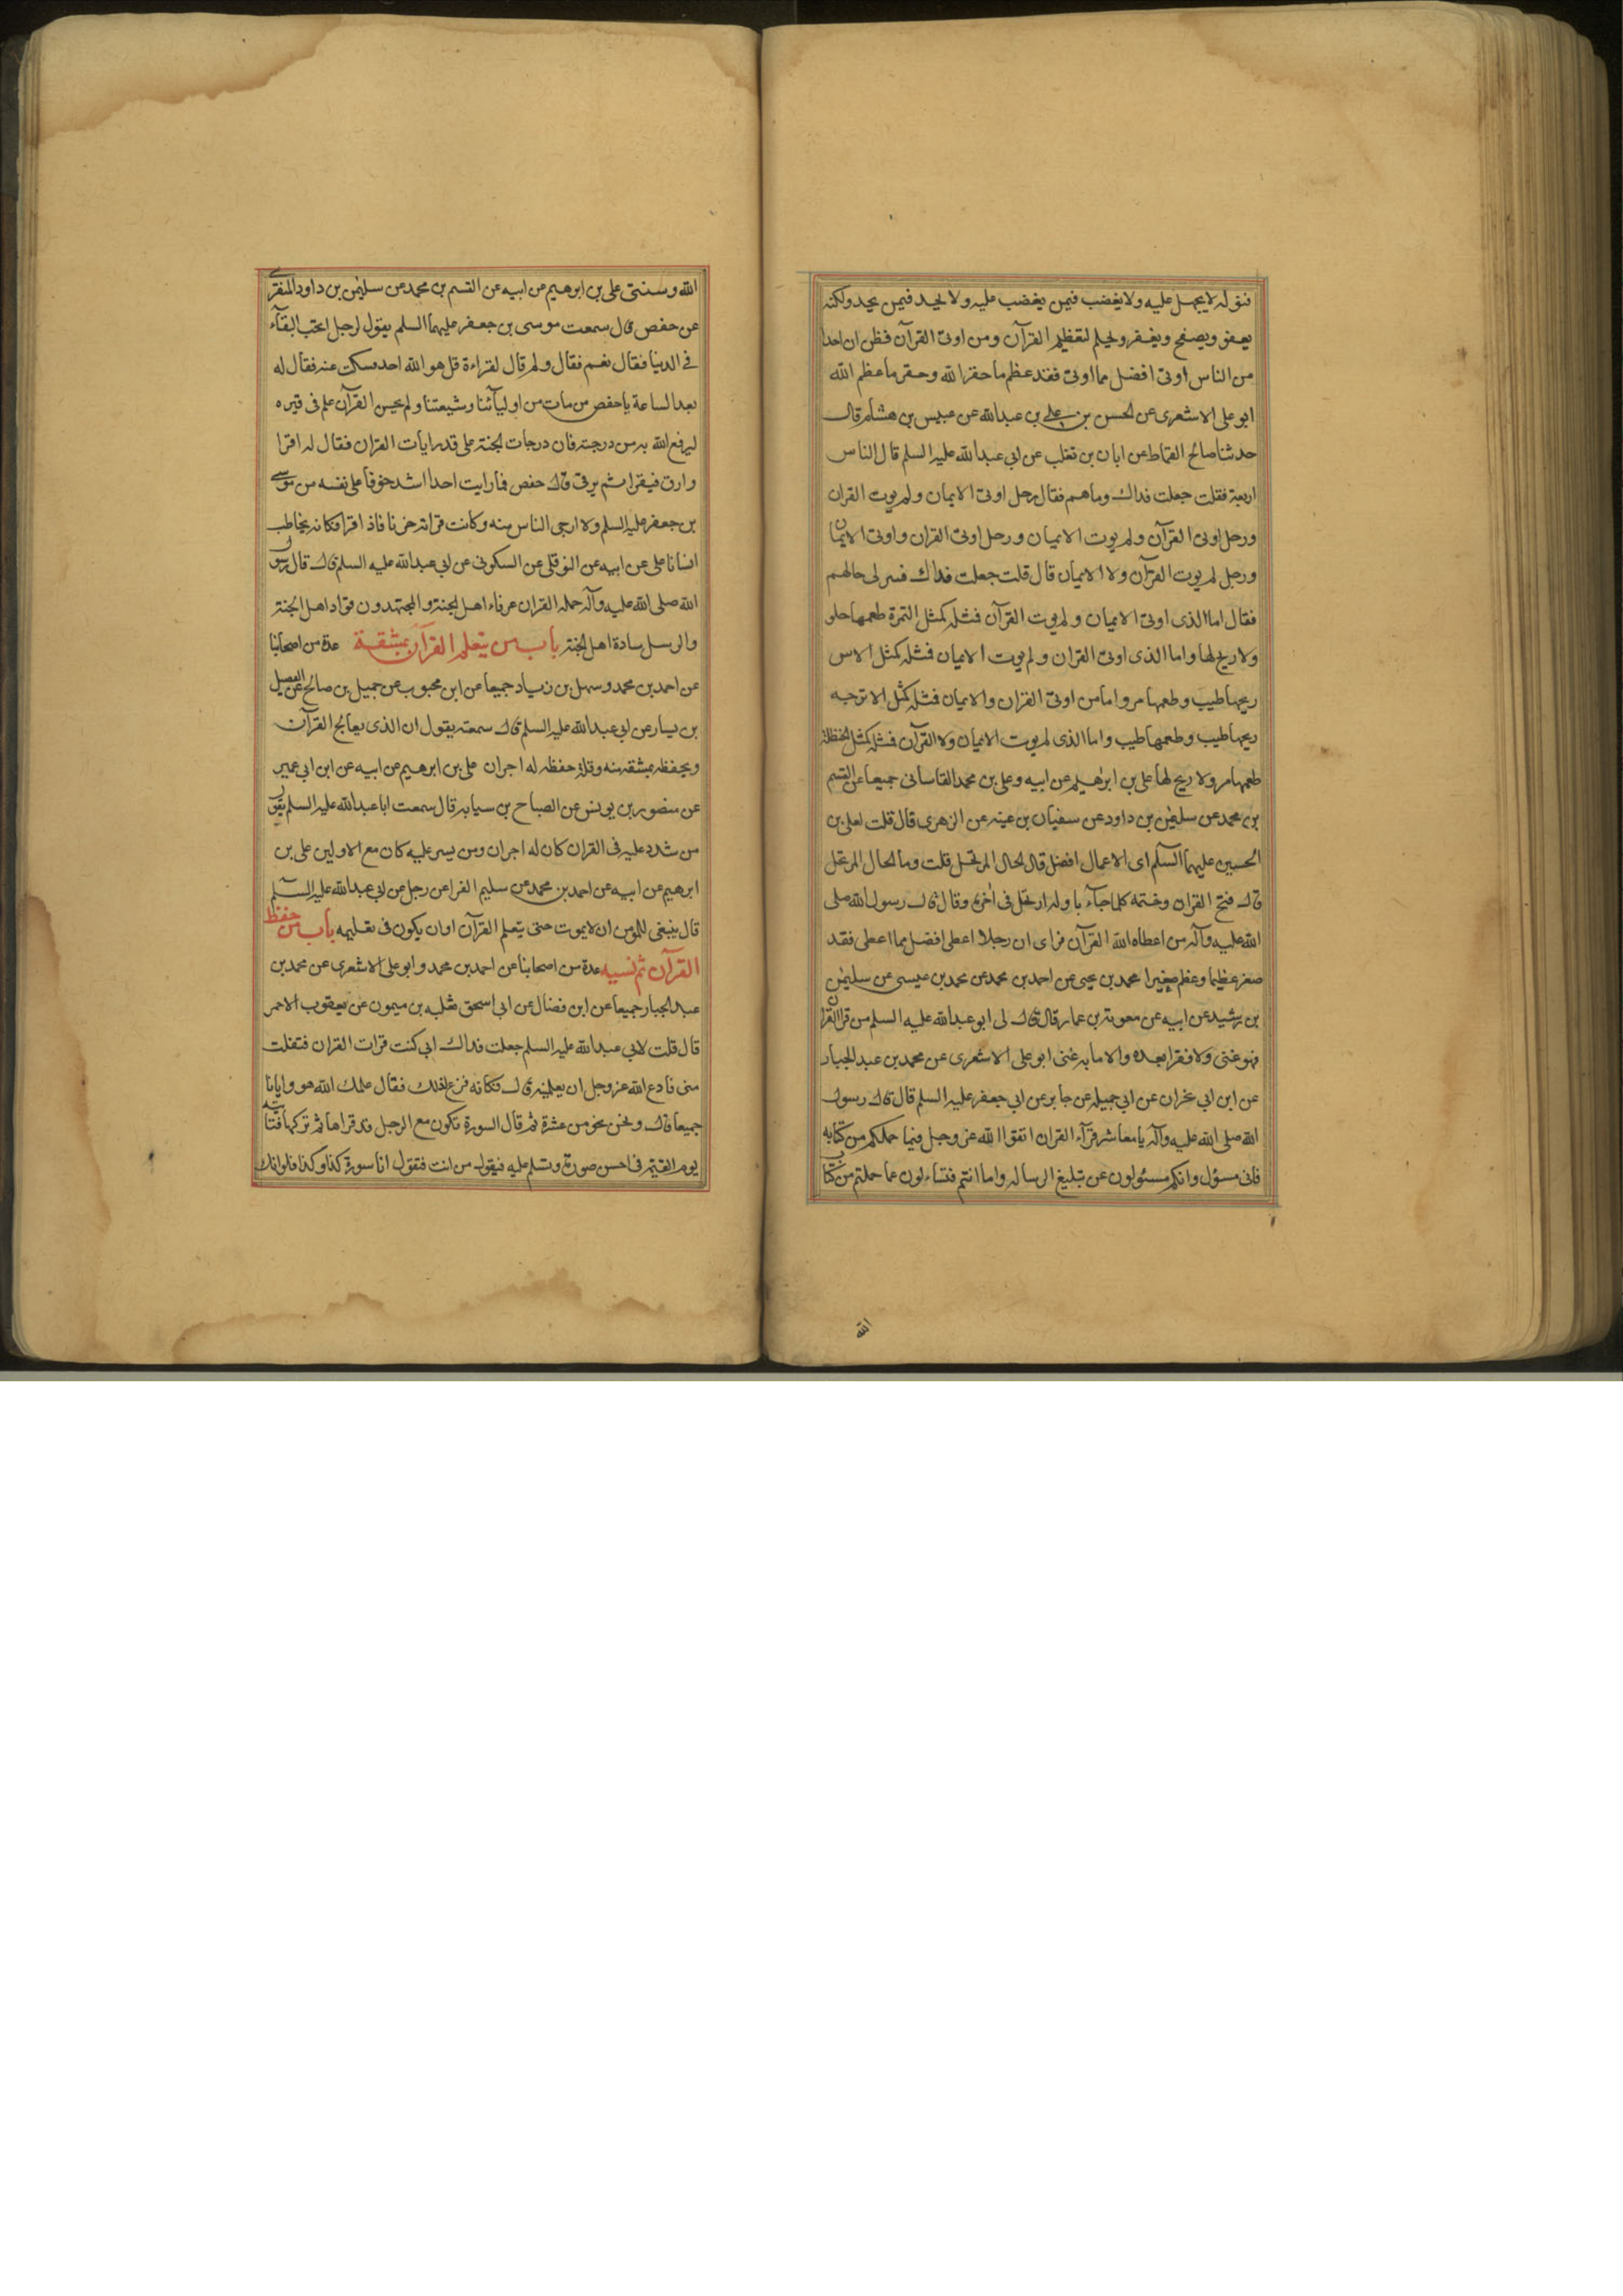 فنوله لا يجهل عليه ولا يغضب فيمن يغضب عليه ولا يحد فيمن يحد ولكنه
يعفو ويصفح ويغفر ويحلم لتعظيم القرآن ومن اوتى القرآن فظن ان احدا
من الناس اوتى افضل مما اوتى فقد عظم ما حقر الله وحقر ما عظم الله
ابو على الاشعرى عن الحسن بن على بن عبدالله عن عبيس بن هشام قال
حدثنا صالح القماط عن ابان بن تغلب عن ابى عبدالله عليه السلم قال الناس
اربعة فقلت جعلت فداك وما هم فقال رجل اوتى الايمان ولم يوت القران
ورجل اوتى القرآن ولم يوت الايمان ورجل اوتى القران واوتى الايمان
ورجل لم يوت القرآن ولا الايمان قال قلت جعلت فداك فسر لى حالهم
فقال اما الذى اوتى الايمان ولم يوت القرآن فمثله كمثل التمرة طعمها حلو
ولا ريح لها واما الذى اوتى القران ولم يوت الايمان فمثله كمثل الاس
ريحها طيب وطعمها مر واما من اوتى القران والايمان فمثله كمثل الاترجه
ريحها طيب وطعمها طيب واما الذى لم يوت الايمان ولا القرآن فمثله كمثل الحنظلة
طعمها مر ولا ريح لها على بن ابرهيم عن ابيه وعلى بن محمد القاسانى جميعا عن القسم
بن محمد عن سليمن بن داود عن سفيان بن عينه عن الزهرى قال قلت لعلى بن
الحسين عليهما السلم اى الاعمال افضل قال الحال المرتحل قلت وما الحال المرتحل
قال فتح القران وختمه كلما جآء باوله ارتحل فى اخره وقال قال رسول الله صلى
الله عليه وآله من اعطاه الله القرآن فراى ان رجلا اعطى افضل مما اعطى فقد
صغر عظيما وعظم صغيرا محمد بن يحيى عن احمد بن محمد عن محمد بن عيسى عن سليمن
بن رشيد عن ابيه عن معوية بن عمار قال قال لى ابو عبدالله عليه السلم من قرا القران
فهو غنى ولا فقر بعده والا ما به غنى ابو على الاشعرى عن محمد بن عبد الجبار
عن ابن ابى نجران عن ابى جميله عن جابر عن ابى جعفر عليه السلم قال قال رسول
الله صلى الله عليه وآله يا معاشر قرآء القران اتقوا الله عز وجل فيما حملكم من كتابه
فانى مسؤل وانكم مسئولون عن تبليغ الرساله واما انتم فتساءلون عما حملتم من كتاب
الله
الله وسنتى على بن ابرهيم عن ابيه عن القسم بن محمد عن سليمن بن داود المنقرى
عن حفص قال سمعت موسى بن جعفر عليهما السلم يقول لرجل اتحب البقآء
فى الدنيا فقال نعم فقال ولم قال لقراءة قل هو الله احد فسكت عنه فقال له
بعد الساعة يا حفص من مات من اوليآئنا وشيعتنا ولم يحسن القرآن علم فى قبره
ليرفع الله به من درجته فان درجات الجنة على قدر ايات القران فقال له اقرا
وارق فيقرا ثم يرقى قال حفص فما رايت احدا اشد خوفا على نفسه من موسى
بن جعفر عليه السلم ولا ارجى الناس منه وكانت قرائته حزنا فاذا قرا فكانه يخاطب
انسانا على عن ابيه عن النوفلى عن السكونى عن ابى عبدالله عليه السلم قال قال رسول
الله صلى الله عليه وآله حملة القران عرفاء اهل الجنة والمجتهدون قواد اهل الجنة
والرسل سادة اهل الجنة باب من يتعلم القرآن بمشقة عدة من اصحابنا
عن احمد بن محمد وسهل بن زياد جميعا عن ابن محبوب عن جميل بن صالح عن الفضيل
بن يسار عن ابى عبدالله عليه السلم قال سمعته يقول ان الذى يعالج القرآن
ويحفظه بمشقه منه وقلة حفظه له اجران على بن ابرهيم عن ابيه عن ابن ابى عمير
عن منصور بن يونس عن الصباح بن سيابه قال سمعت ابا عبدالله عليه السلم يقول
من شدد عليه فى القران كان له اجران ومن يسر عليه كان مع الاولين على بن
ابرهيم عن ابيه عن احمد بن محمد عن سليم الفرا عن رجل عن ابى عبدالله عليه السلم
قال ينبغى للمؤمن ان لا يموت حتى يتعلم القرآن او ان يكون فى تعليمه باب من حفظ
القرآن ثم نسيه عدة من اصحابنا عن احمد بن محمد وابو على الاشعرى عن محمد بن
عبد الجبار جميعا عن ابن فضال عن ابى اسحق ثعلبه بن ميمون عن يعقوب الاحمر
قال قلت لابى عبدالله عليه السلم جعلت فداك انى كنت قرات القران فتفلت
منى فادع الله عز وجل ان يعلمنيه قال فكانه فزع لذلك فقال علمك الله هو وايانا
جميعا قال ونحن نحو من عشرة ثم قال السورة تكون مع الرجل قد قراها ثم تركها فتاتيه
يوم القيمة فى احسن صورة وتسلم عليه فيقول من انت فتقول انا سورة كذا وكذا فلو انك